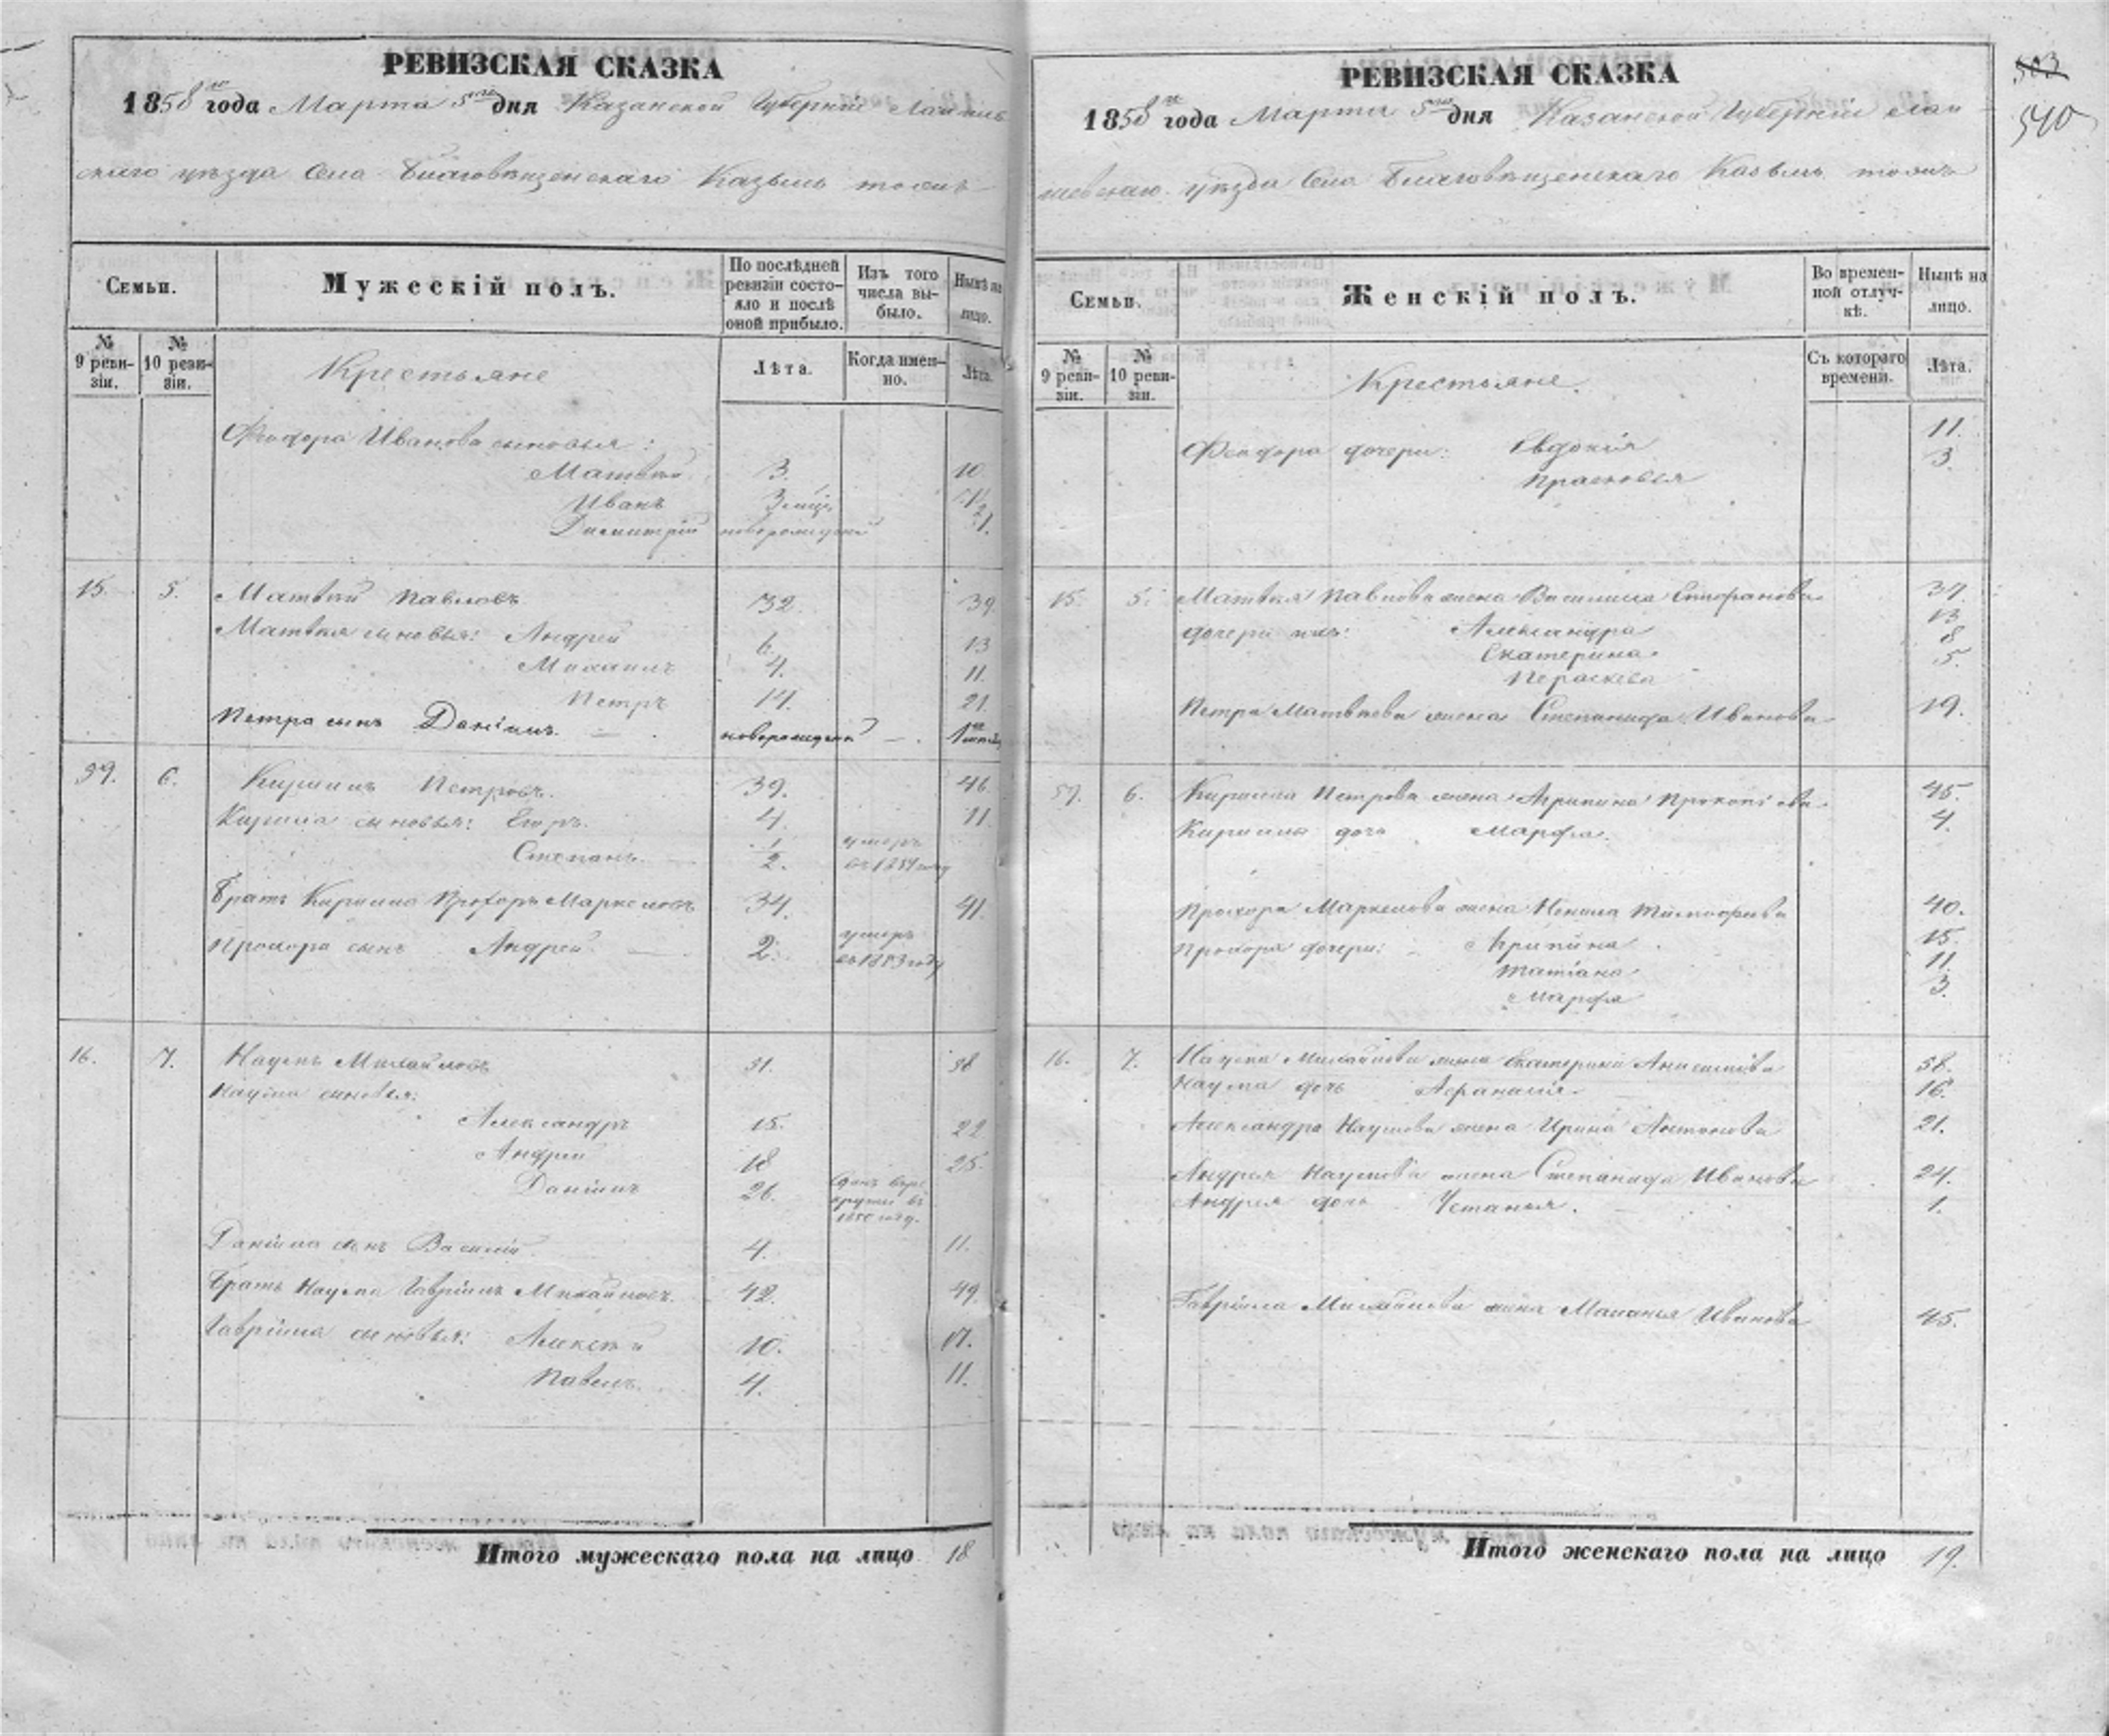 РЕВИЗСКАЯ СКАЗКА
1858го года Марта 5го дня Казанской Губерніи Лаишев
скаго уѣзда Села Благовѣщенскаго Казыль тоже
Семьи.
Мужескій полъ.
По послѣдней ревизіи состояло и послѣ оной прибыло.
Изъ того числа выбыло.
Нынѣ на лицо.
№ 9 ревизіи.
№ 10 ревизіи.
Крестьяне
Лѣта.
Когда именно.
Лѣта.
Феодора Иванова сыновья:
Матвѣй 3. 10
Иванъ 3 мѣс.
Димитрій новорожденъ 1.
15. 5. Матвѣй Павловъ 32. 39.
Матвѣя сыновья: Андрей 6. 13
Михаилъ 4. 11.
Петръ 14. 21.
Петра сынъ Даніилъ — новорожденъ —
59. 6. Кириллъ Петровъ. 39. 46
Кирила сыновья: Егоръ. 4. 11
Степанъ. 1/2. умеръ
Братъ Кирилла Прохоръ Маркеловъ 34. 41.
Прохора сынъ Андрей — 2. умеръ въ 1853 году
16. 7. Наумъ Михайловъ 51. 58
Наума сыновья:
Александръ 15. 22
Андрей 18 25.
Даніилъ 26. Сданъ въ рекруты въ
Даніила сынъ Василій 4. 11.
Братъ Наума Гавріилъ Михайловъ. 42. 49.
Гавріила сыновья: Алексѣй 10. 17.
Павелъ. 4. 11.
Итого мужескаго пола на лицо 18
РЕВИЗСКАЯ СКАЗКА
1858го года Марта 5го дня Казанской Губерніи Лаи
шевскаго уѣзда Села Благовѣщенскаго Казыль тоже
503
540
Семьи.
Женскій полъ.
Во временной отлучкѣ.
Нынѣ на лицо.
№ 9 ревизіи.
№ 10 ревизіи.
Крестьяне.
Съ котораго времени.
Лѣта.
Феодора дочери: Евдокія 11.
Прасковья 3.
15. 5. Матвѣя Павлова жена Василиса Стефанова 37.
дочери ихъ: Александра 13
Екатерина 8
Параскева 5.
Петра Матвѣева жена Степанида Иванова 19.
59. 6. Кирилла Петрова жена Агрипина Прокопіева 45.
Кирилла дочь Марфа. 4.
Прохора Маркелова жена Ненила Тимофеева 40.
Прохора дочери: Агрипина 15.
Татіана 11.
Марфа 3.
16. 7. Наума Михайлова жена Екатерина Анисимова 58.
Наума дочь Афанасія 16.
Александра Наумова жена Ирина Антонова 21.
Андрея Наумова жена Степанида Иванова 24.
Андрея дочь Устинья. 1.
Гавріила Михайлова жена Маланья Иванова 45.
Итого женскаго пола на лицо 19.